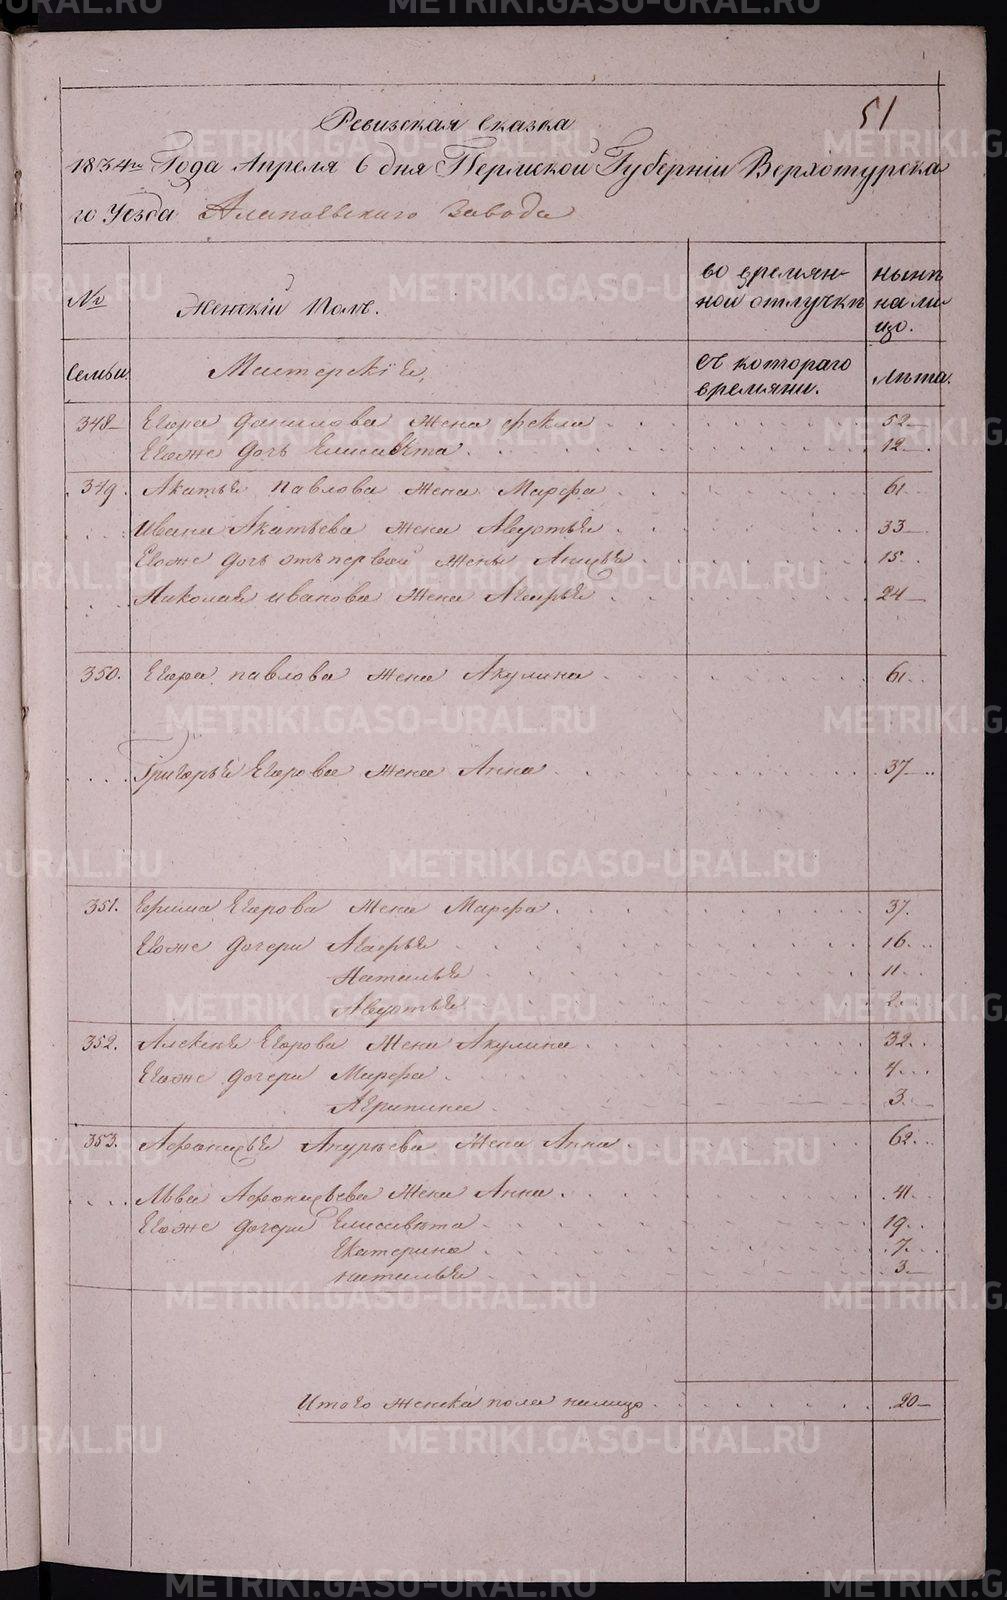 51
Ревизская Сказка
1834го Года Апреля 6 дня Пермской Губернiи Верхотурска
го Уезда Алапаевскаго Завода
№ Женскiй Полъ. во времян- нынѣ
ной отлучкѣ на ли-
цо.
Семьи. Мастерскiе, съ котораго Лѣта.
времяни.
348 Егора Данилова жена Фекла 52
Егоже дочь Елисавѣта 12
349. Акатья Павлова жена Марфа 61
Ивана Акатьева жена Авдотья 33
Егоже дочь отъ первой жены Анисья 15
Николая Иванова жена Агафья 24
350. Егора Павлова жена Акулина 61
Григорья Егорова жена Анна 37
351. Ефима Егорова жена Марфа 37.
Егоже дочери Агафья 16
Наталья 11
Авдотья 2
352. Алексея Егорова жена Акулина 32
Егоже дочери Марфа 4
Агрипина 3
353. Афонасья жена Анна 62
Льва Афонасьева жена Анна 41
Егоже дочери Елисавѣта 19
Екатерина 7
Наталья 3
Итого женска пола налицо 20
METRIKI.GASO-URAL.RU